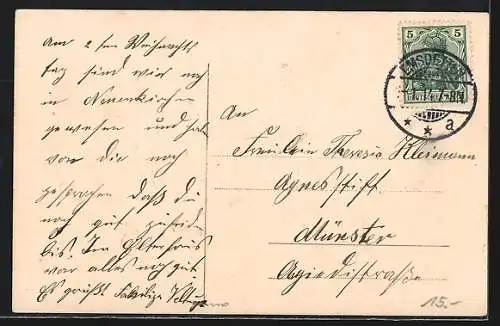 Am 2ten Weihnachts
tag sind wir noch
in Neuenkirchen
gewesen und haben
von dir noch
gesprochen daß du
noch gut zufrieden
bis. Im Elternhaus
war alles noch gut
Es grüßt
An
Fräulein Theresia Kleimann
Agnesstift
Münster
Agiedistraße
5 5
EMSDETTEN
* * a
15.-